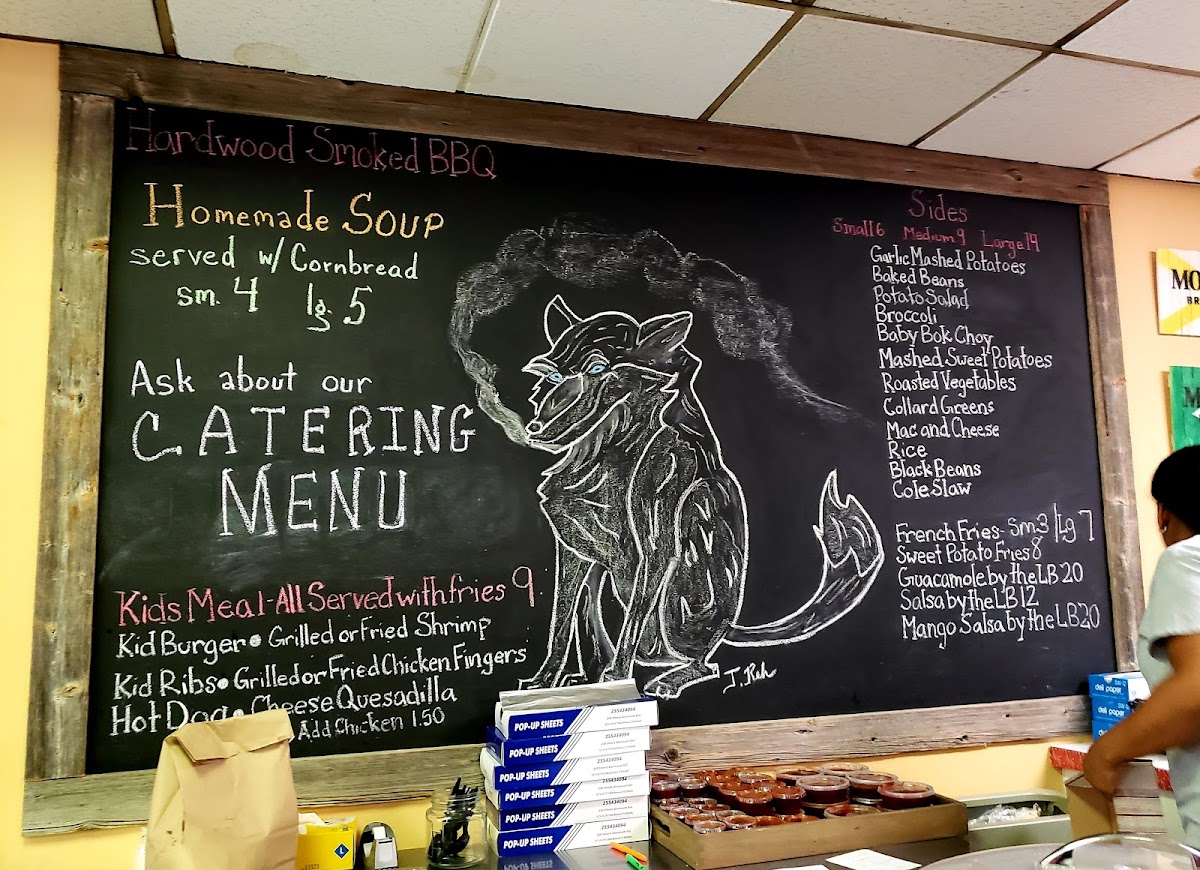 Hardwood Smoked BBQ
Homemade Soup
served w/ Cornbread
sm. 4 lg. 5
Ask about our
CATERING
MENU
Kids Meal-All Served with fries 9
Kid Burger • Grilled or Fried Shrimp
Kid Ribs • Grilled or Fried Chicken Fingers
Hot Dog • Cheese Quesadilla
Add Chicken 1.50
Sides
Small 6 Medium 9 Large 14
Garlic Mashed Potatoes
Baked Beans
Potato Salad
Broccoli
Baby Bok Choy
Mashed Sweet Potatoes
Roasted Vegetables
Collard Greens
Mac and Cheese
Rice
Black Beans
Cole Slaw
French Fries- sm. 3 / Lg 7
Sweet Potato Fries 8
Guacamole by the LB 20
Salsa by the LB 12
Mango Salsa by the LB 20
J. Reh
MO
BR
M
deli paper
deli paper
POP-UP SHEETS 255434094
POP-UP SHEETS 255434094
POP-UP SHEETS 255434094
POP-UP SHEETS 255434094
POP-UP SHEETS 255434094
POP-UP SHEETS 255434094